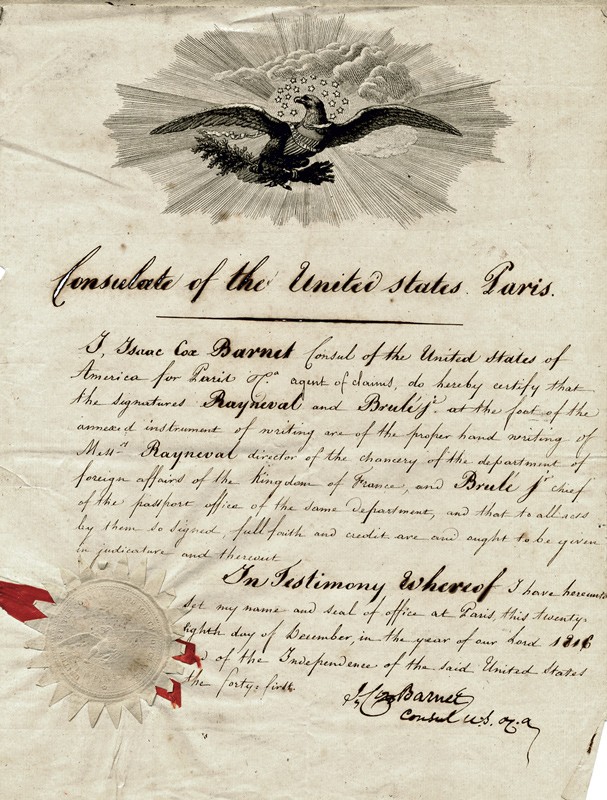 Consulate of the United states. Paris.
I, Isaac Cox Barnet Consul of the United States of
America for Paris & agent of claims, do hereby certify that
the signatures Rayneval and Brulé jr. at the foot of the
annexed instrument of writing are of the proper hand writing of
Messrs Rayneval director of the chancery of the department of
foreign affairs of the Kingdom of France, and Brulé jr chief
of the passport office of the same department, and that to all acts
by them so signed, full faith and credit are and ought to be given
in judicature and thereout
In Testimony Whereof I have hereunto
set my name and seal of office at Paris, this twenty-
eighth day of December, in the year of our Lord 1816
of the Independence of the said United States
the forty-first.
I. Cox Barnet
Consul U.S.